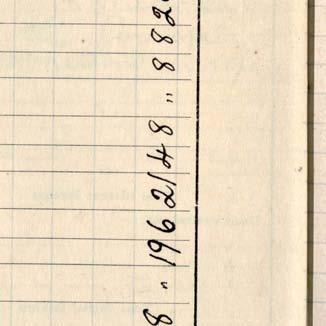 8 " 1962148 " 882